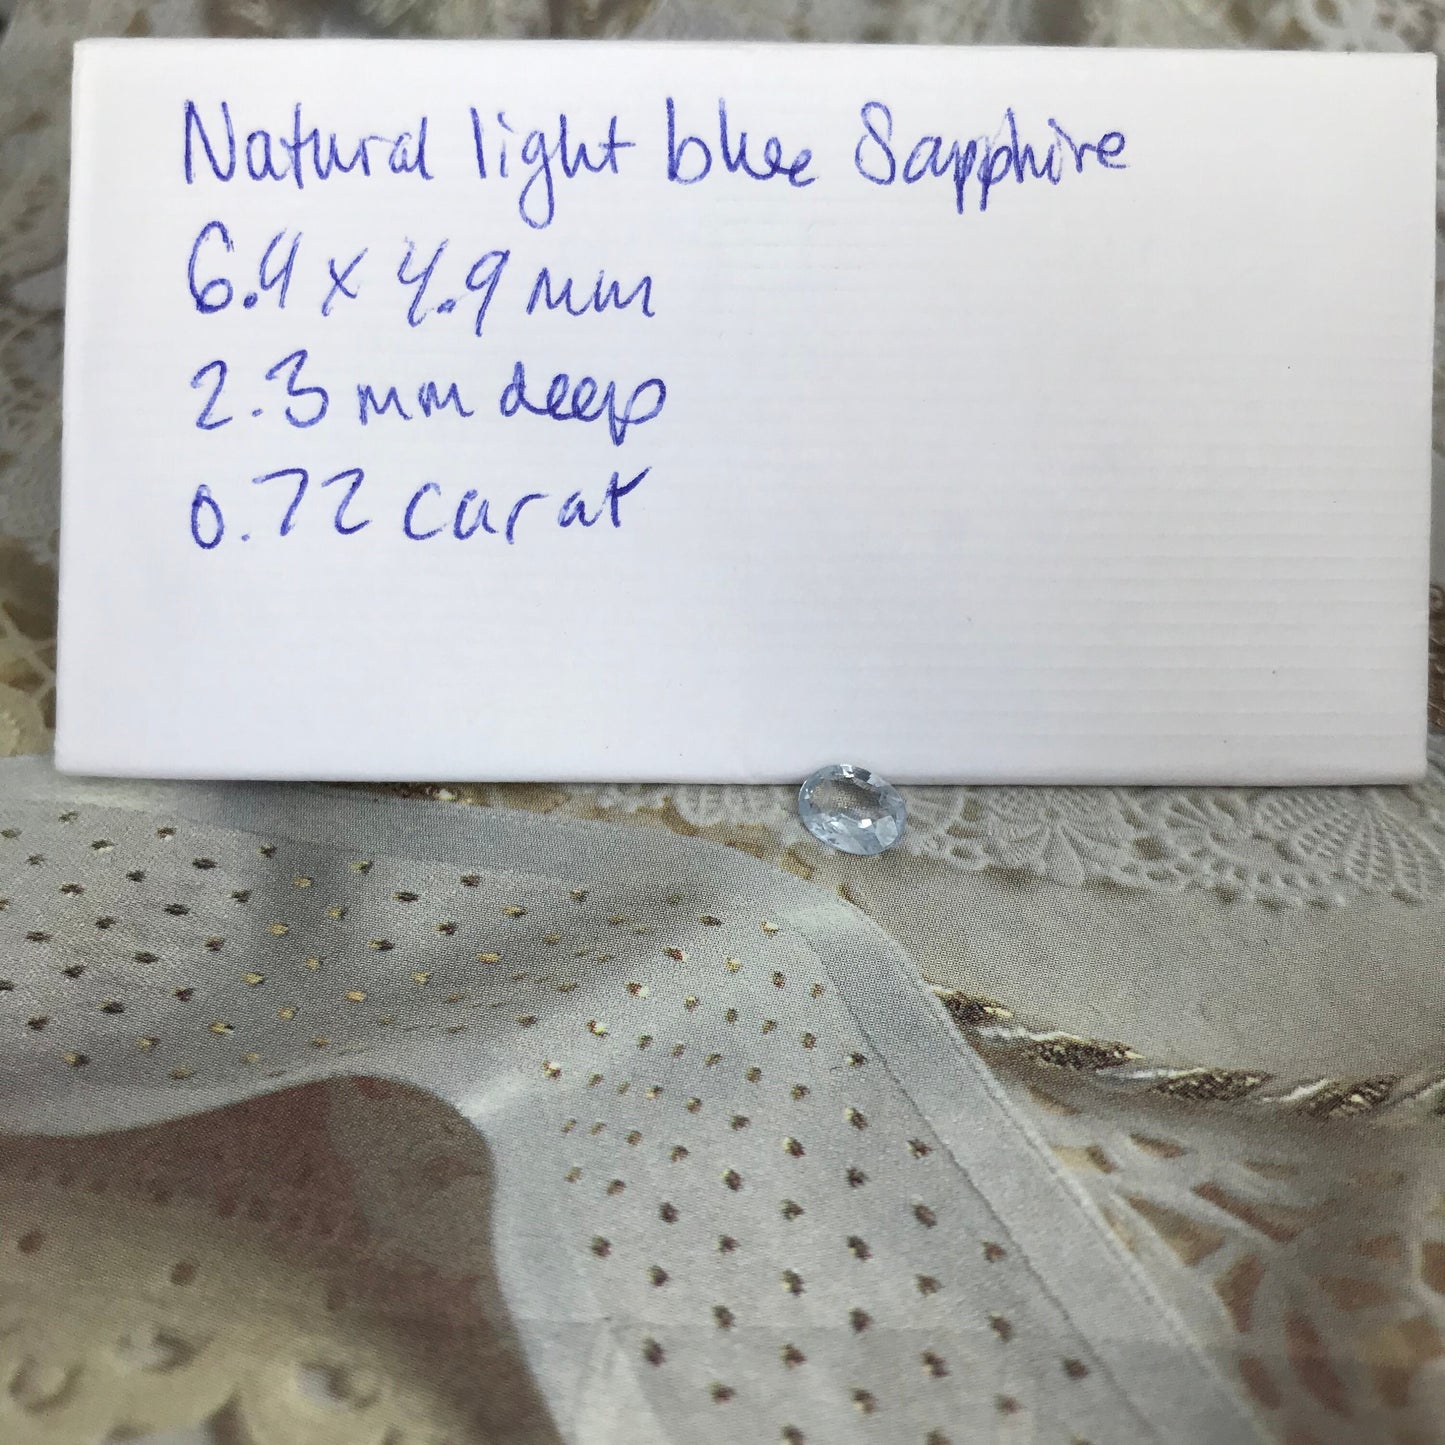 Natural light blue Sapphire
6.4 x 4.9 mm
2.3 mm deep
0.72 carat